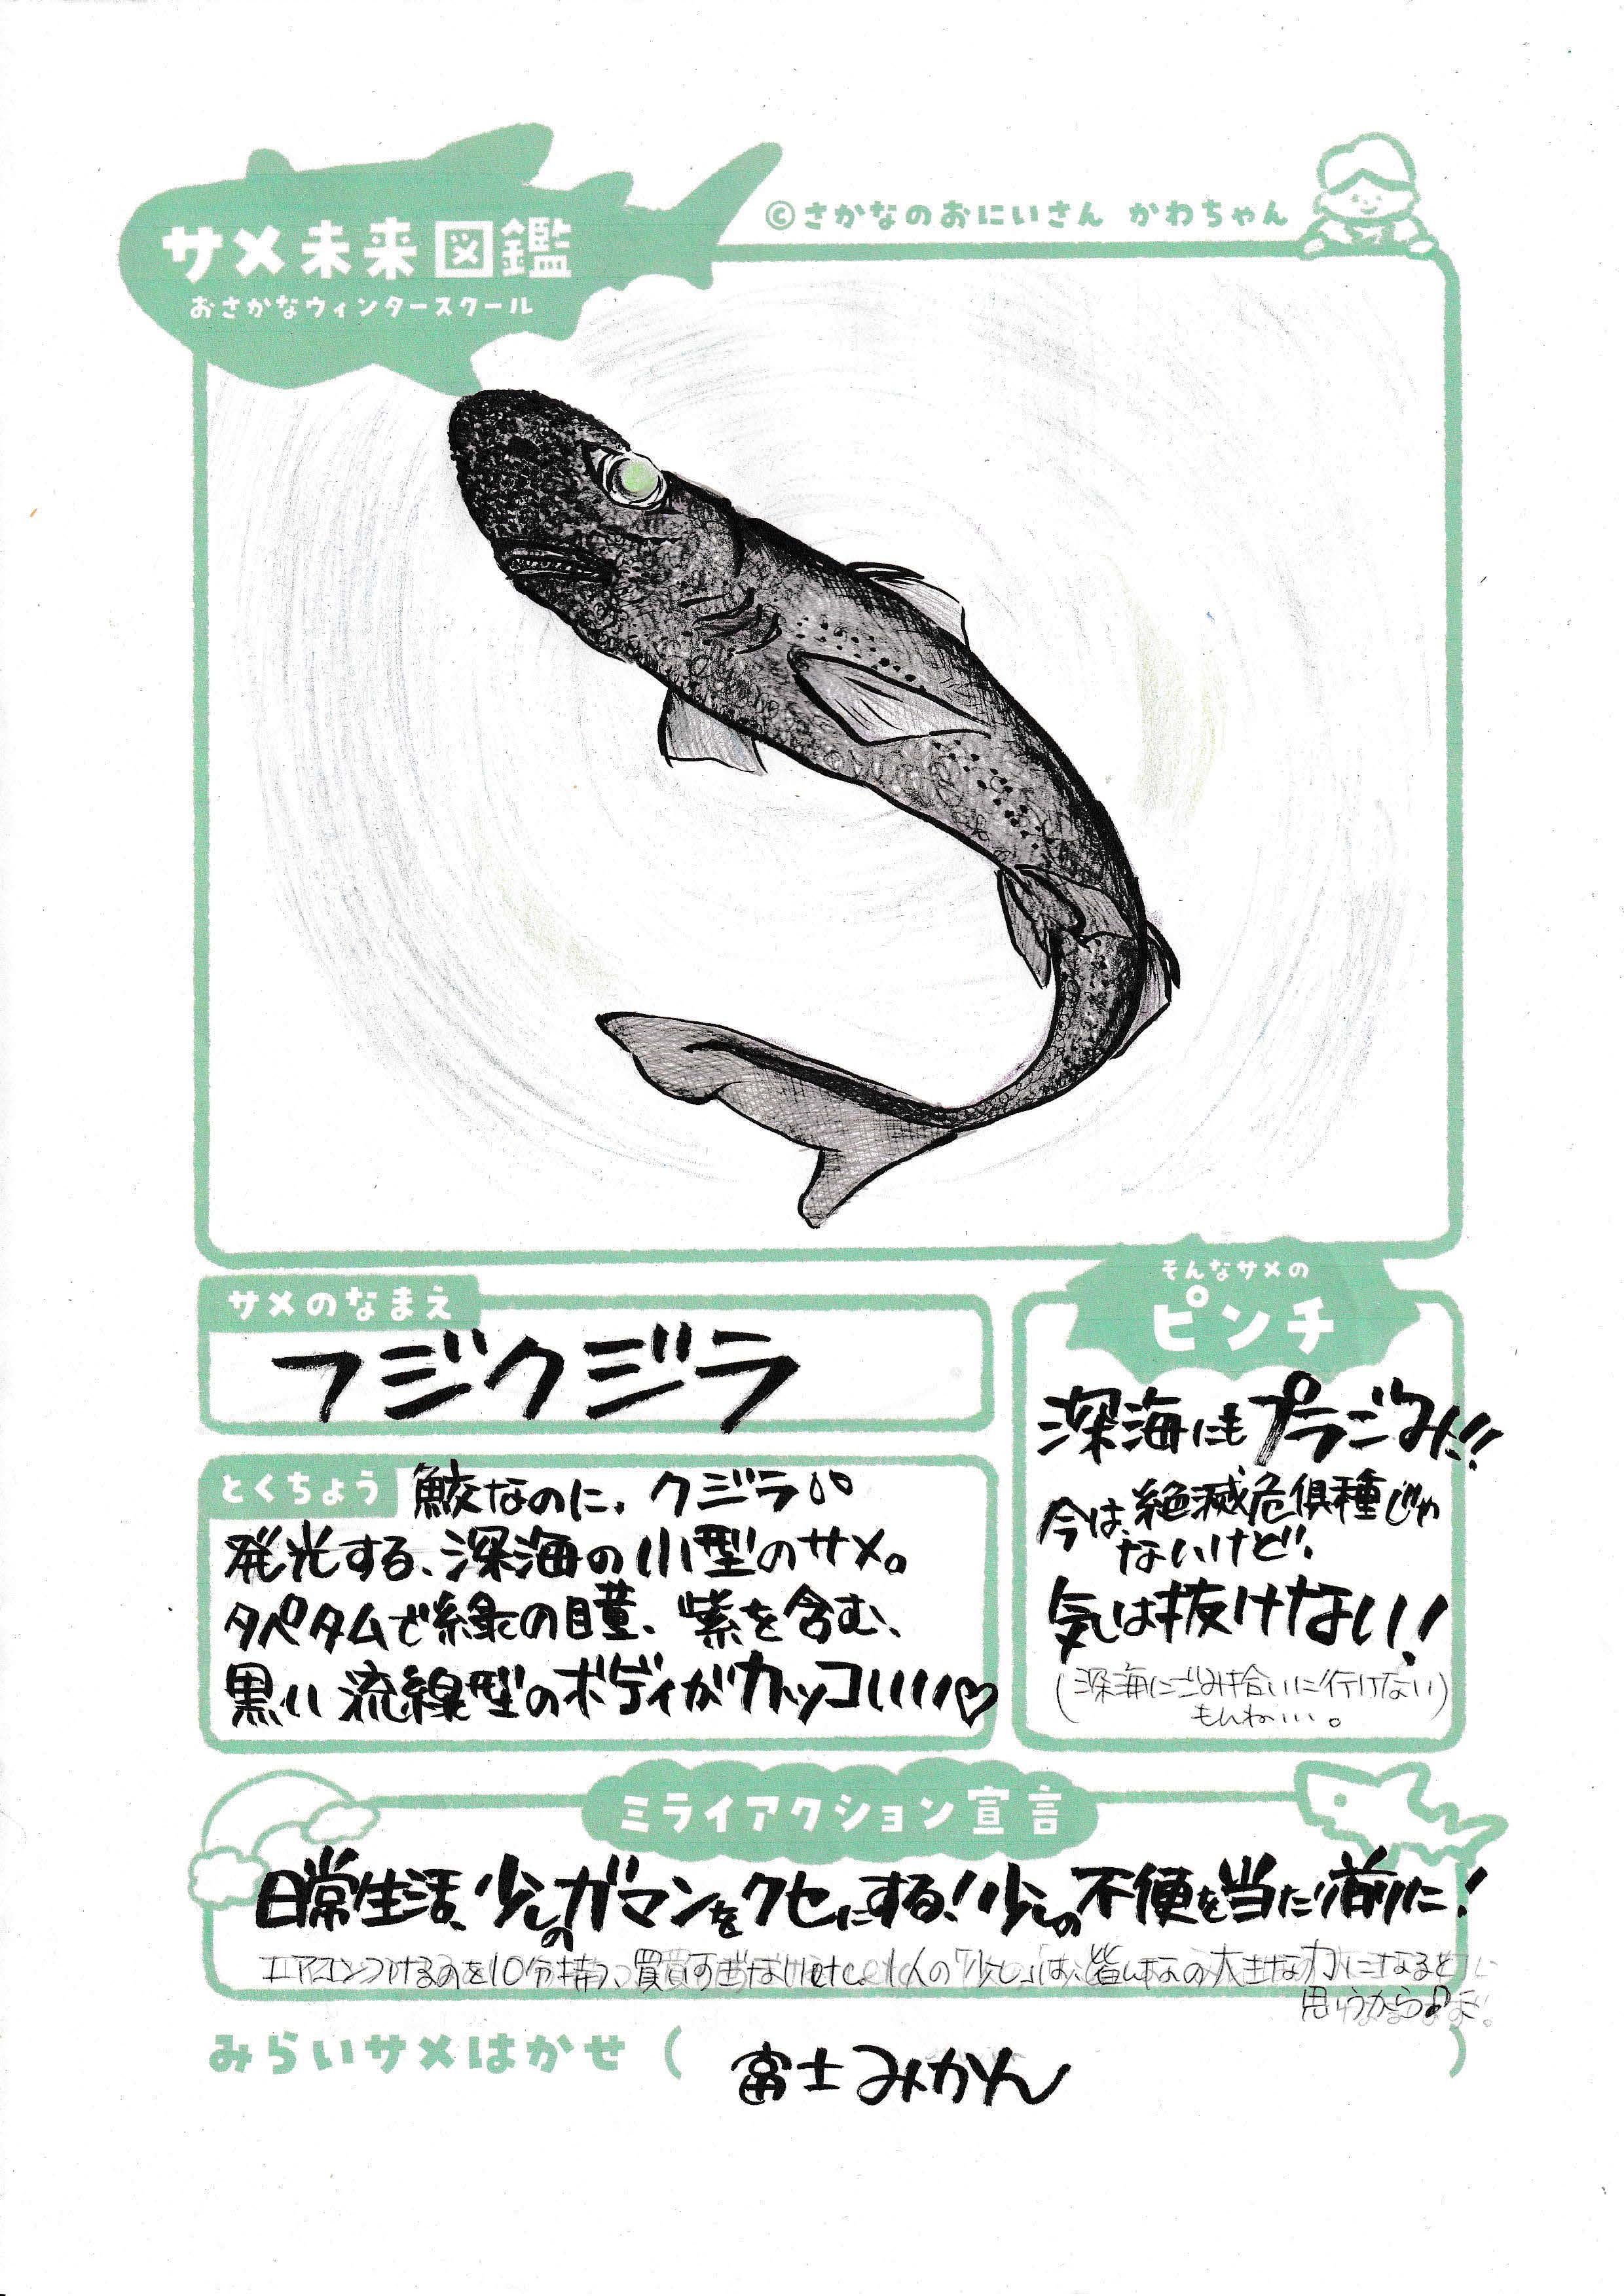 サメ未来図鑑
おさかなウィンタースクール
©さかなのおにいさん かわちゃん
サメのなまえ
フジクジラ
とくちょう
鮫なのに、クジラ
発光する、深海の小型のサメ。
タペタムで緑の瞳、紫を含む、
黒い流線型のボディがカッコいいい♡
そんなサメの
ピンチ
深海にもプラごみ!!
今は、絶滅危惧種じゃ
ないけど、
気は抜けない!
(深海にごみ拾いに行けない)
もんね…。
ミライアクション宣言
日常生活、少しのガマンをクセにする!少しの不便を当たり前に!
エアコンつけるのを10分待つ、買いすぎないetc. 1人の「少し」は、皆んなの大きな力になると
思うから♪
みらいサメはかせ( 富士みかん )